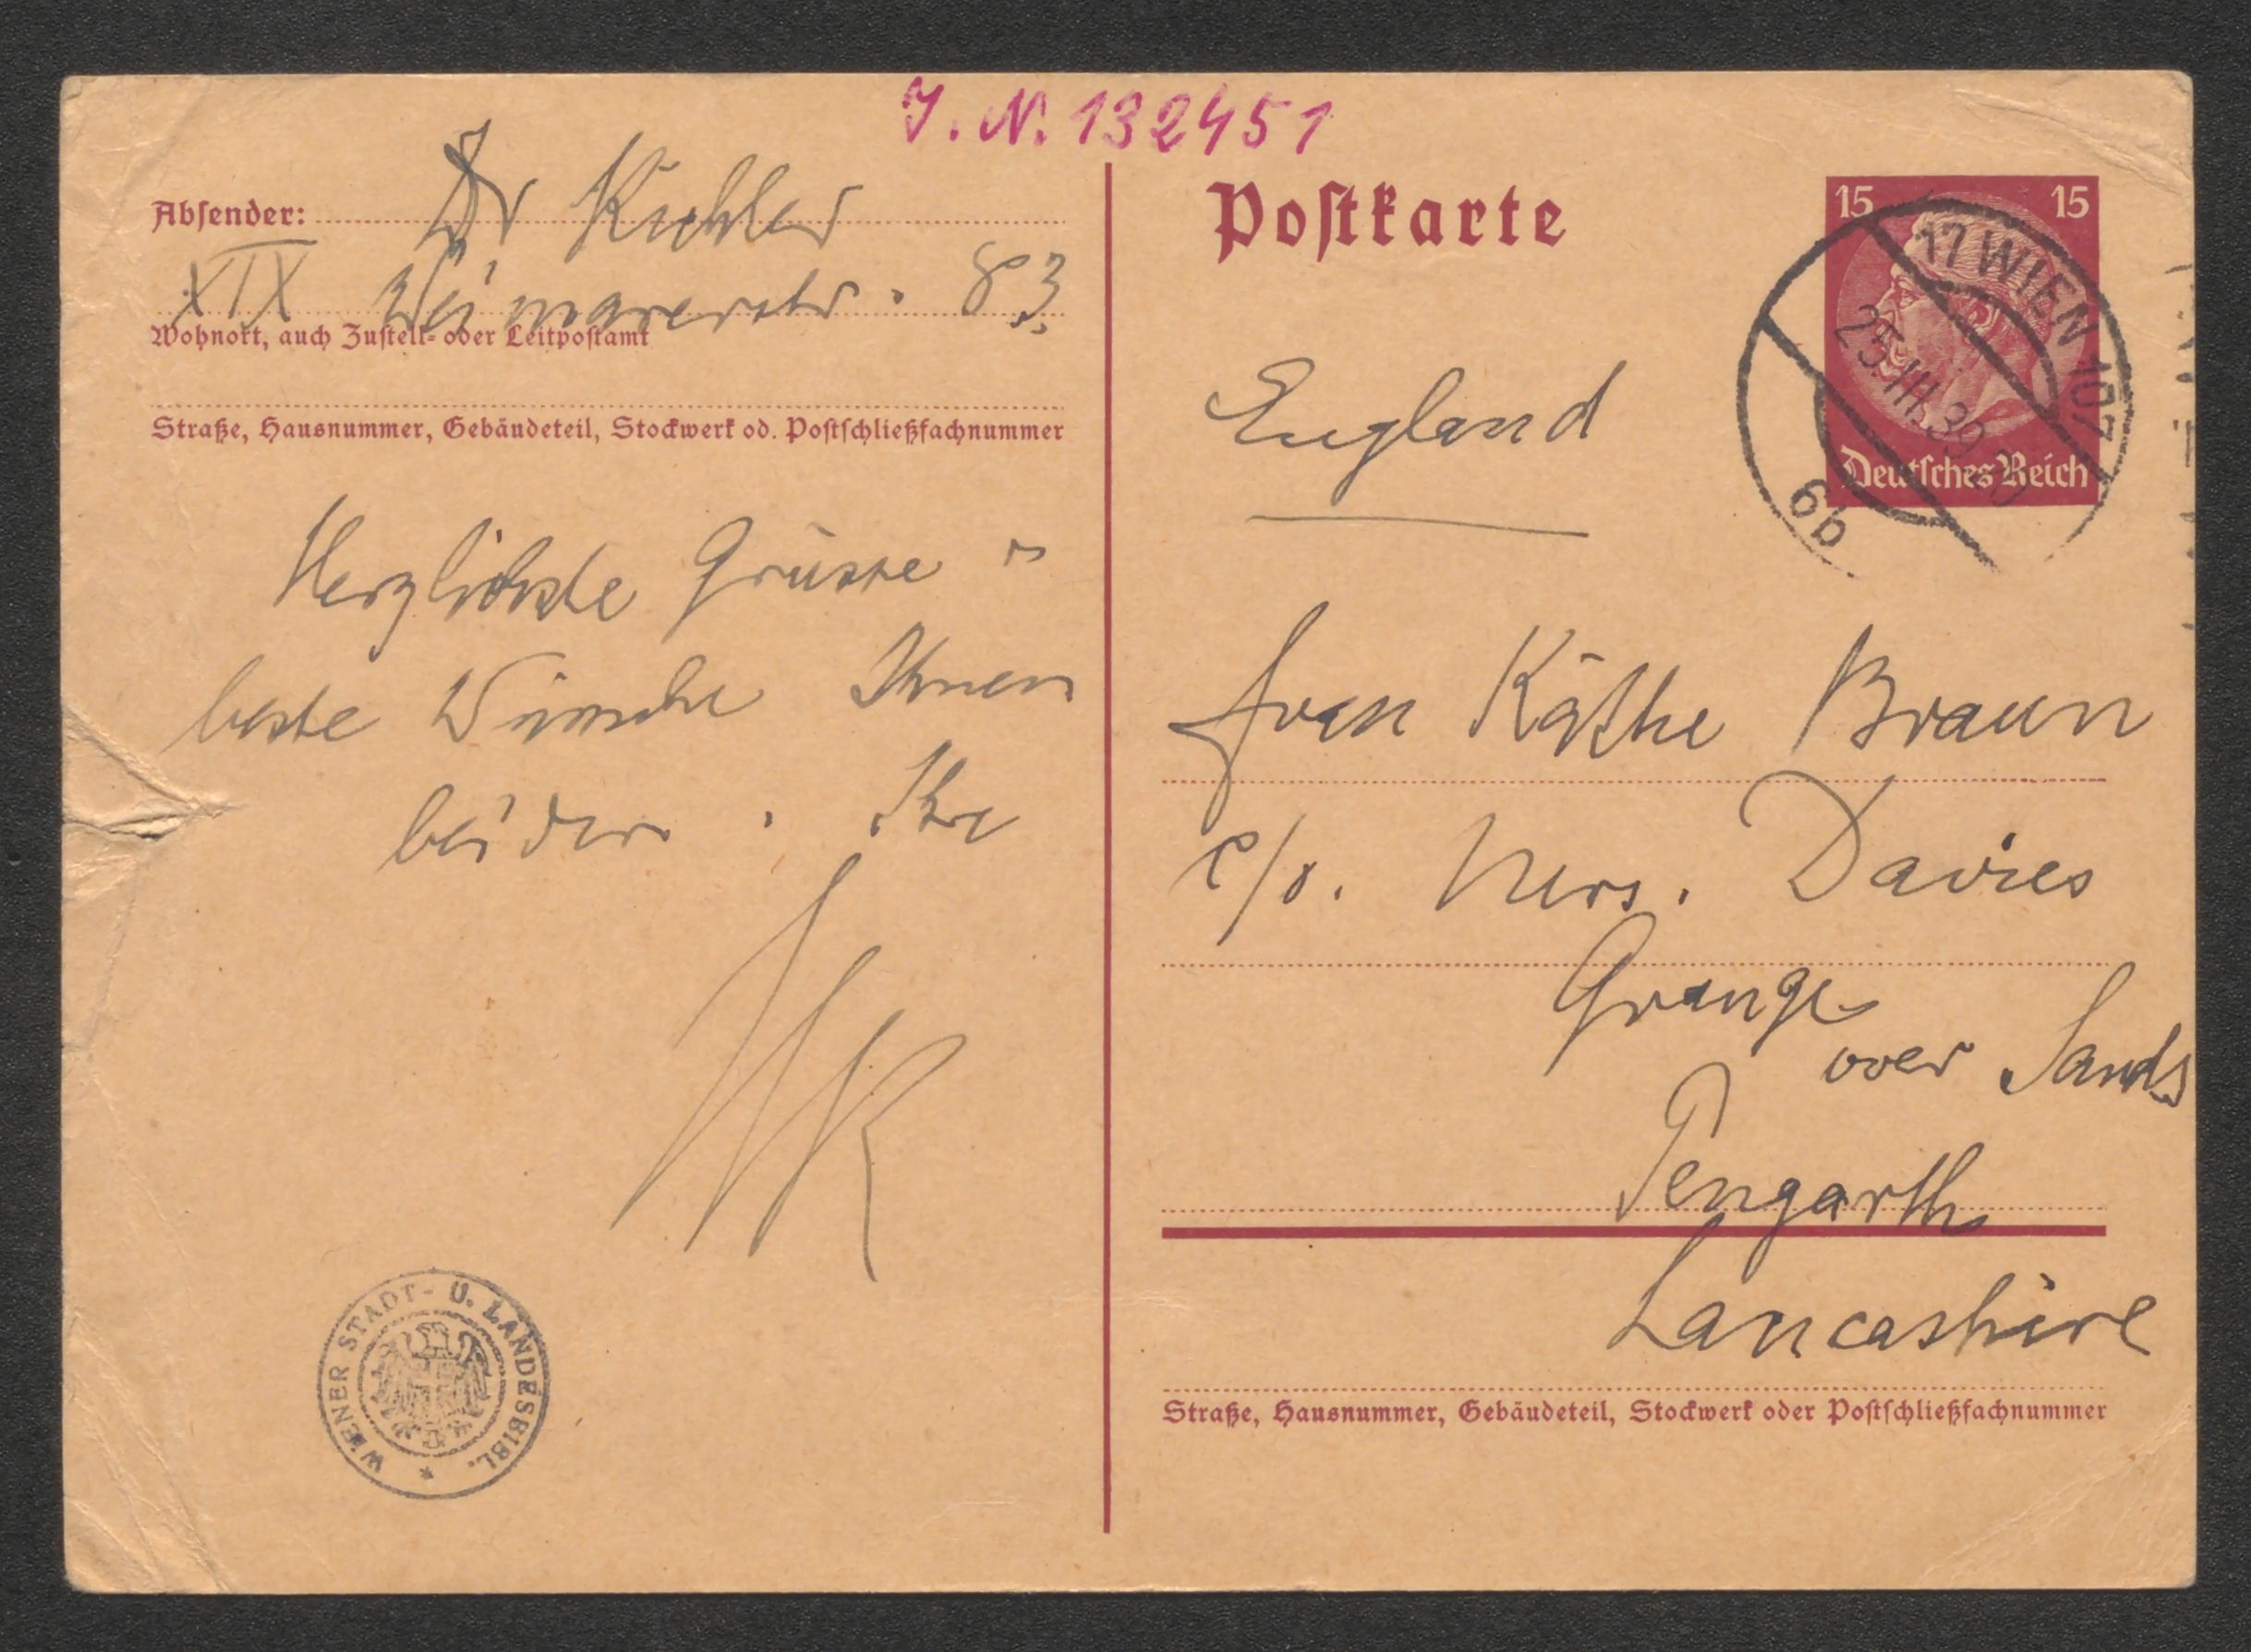 J. N. 132451
Absender: Dr Kuhler
XIX Weimarerstr. 83.
Wohnort, auch Zustell- oder Leitpostamt
Straße, Hausnummer, Gebäudeteil, Stockwerk od. Postschließfachnummer
Herzlichste Grüsse
beste Wünsche Ihnen
beiden. Ihr
Postkarte
15 15
Deutsches Reich
17 WIEN 107
25.III.39
6b
England
Frau Käthe Braun
c/o. Mrs. Davies
Grange
over Sands
Pengarth
Lancashire
Straße, Hausnummer, Gebäudeteil, Stockwerk oder Postschließfachnummer
WIENER STADT- U. LANDESBIBL.